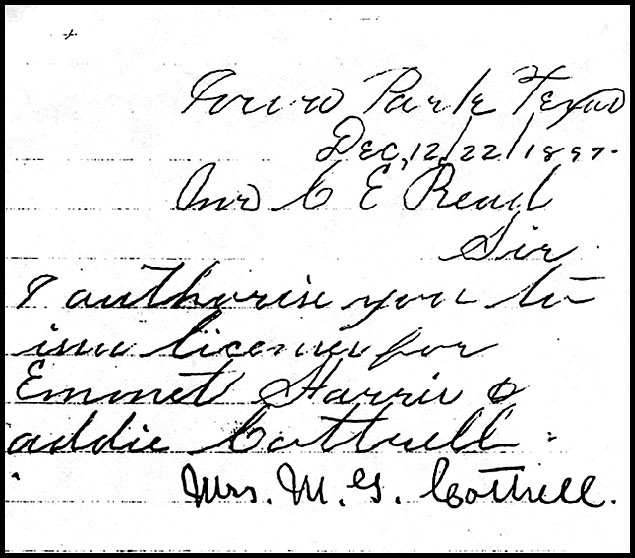 Iowa Park Texas
Dec, 12/22/1897.
Mr C E Read
Sir
I authorise you to
issue license for
Emmet Harris &
addie Cottrell
Mrs. M. G. Cottrell.